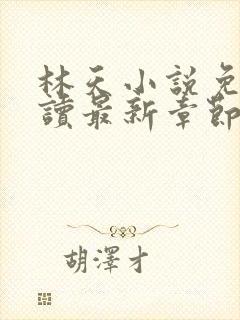 林天小說免
讀最新章節
胡澤才